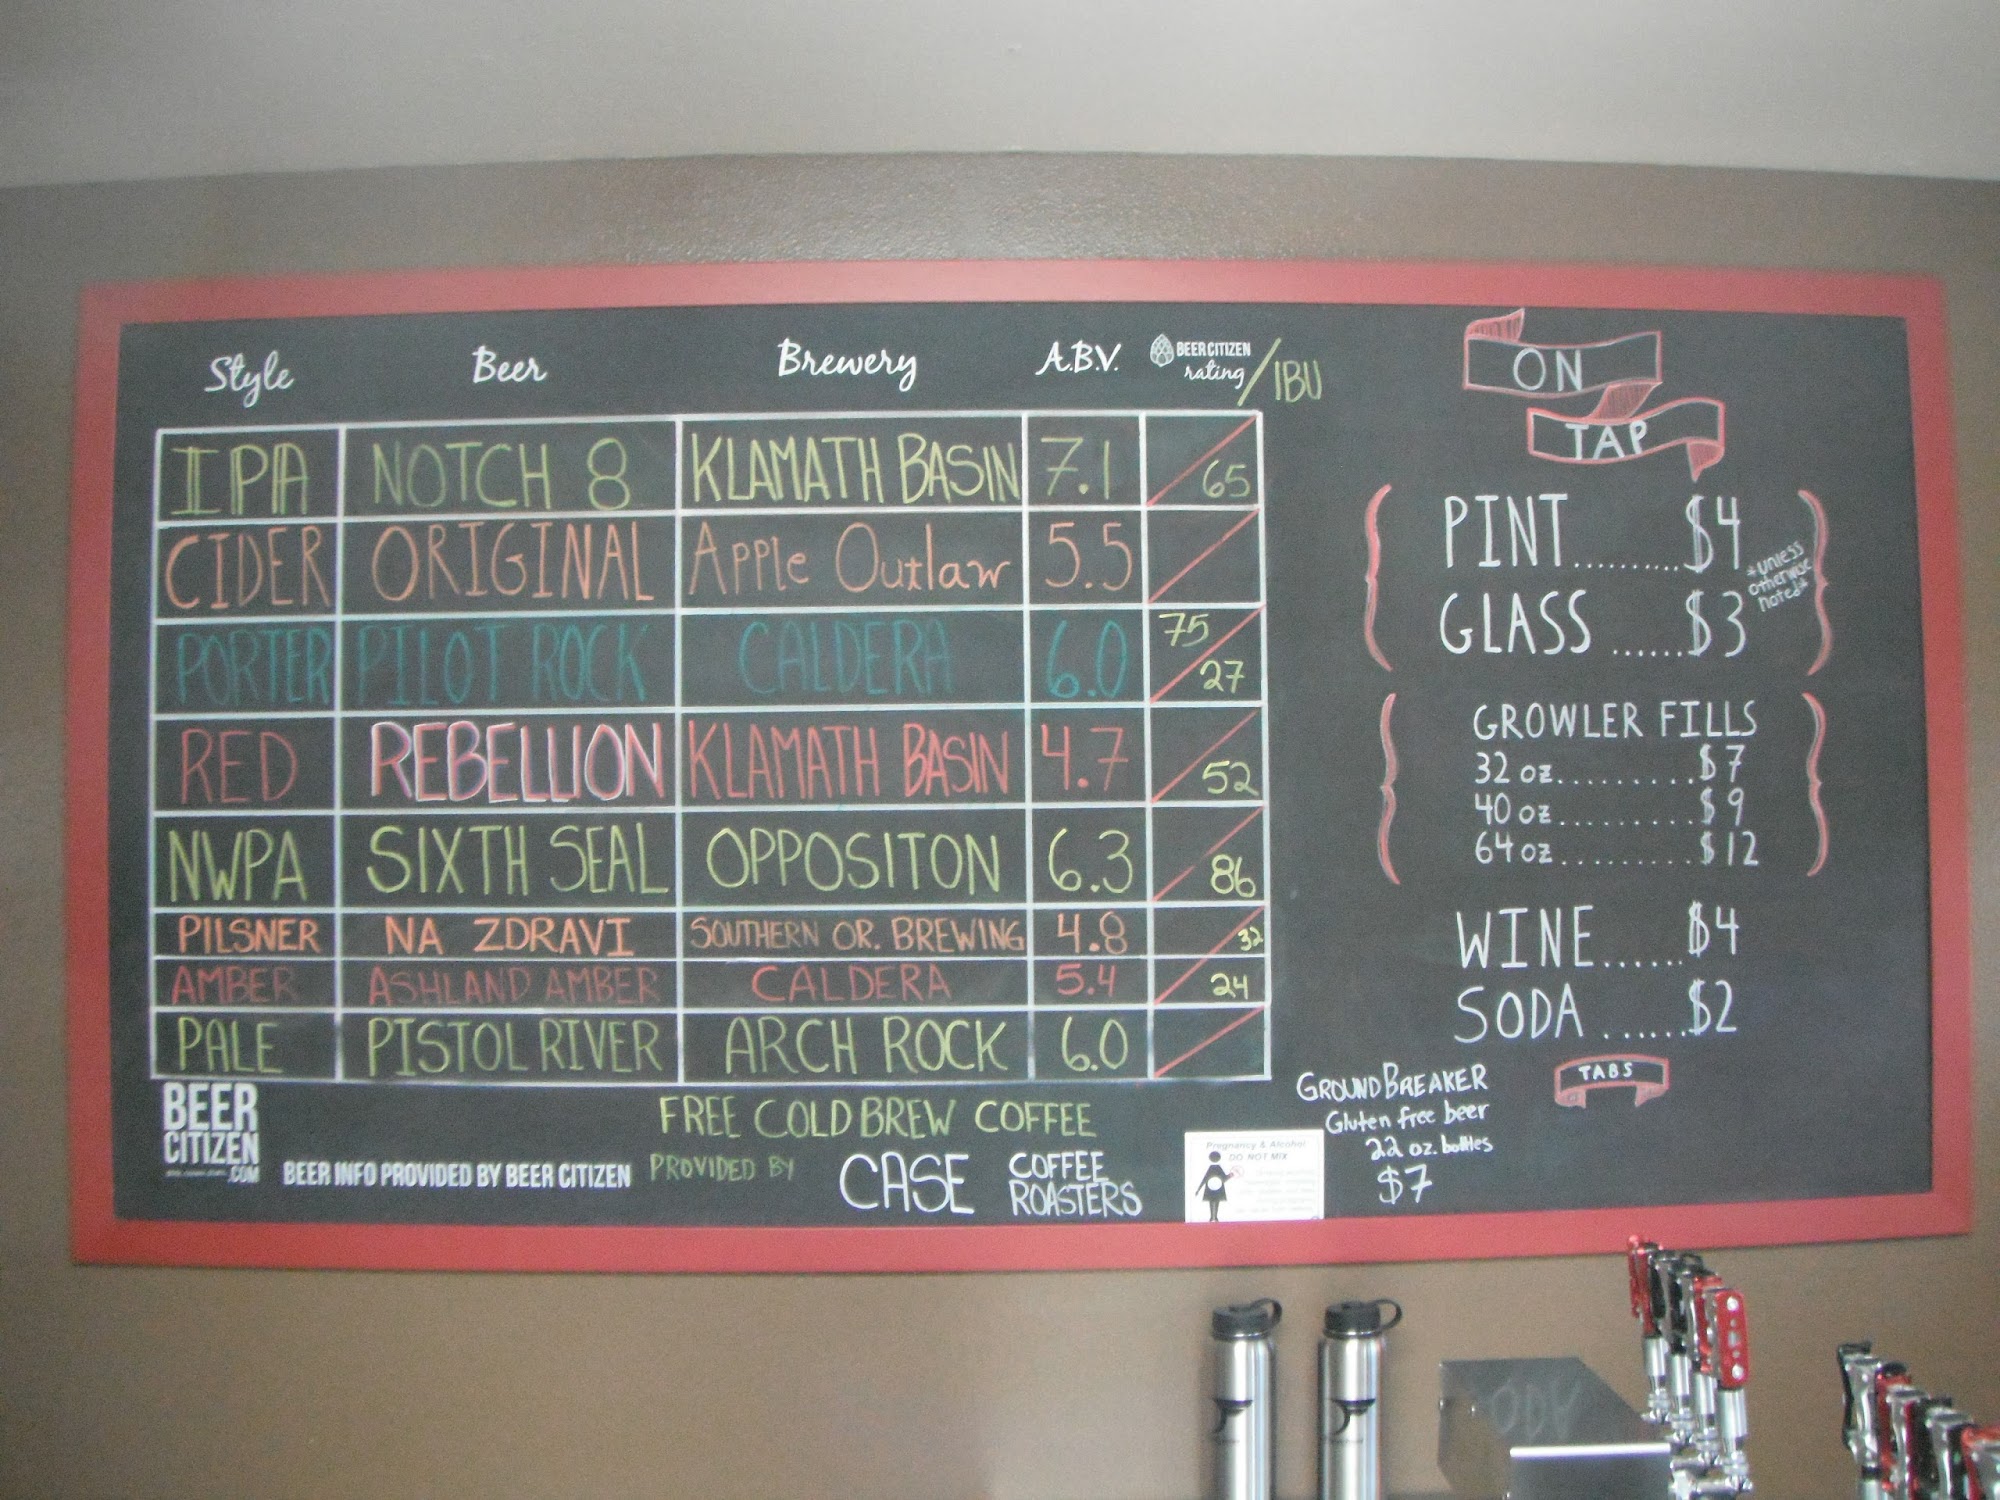 Style Beer Brewery A.B.V. BEER CITIZEN rating / IBU
IPA NOTCH 8 KLAMATH BASIN 7.1 65
CIDER ORIGINAL Apple Outlaw 5.5
PORTER PILOT ROCK CALDERA 6.0 75 27
RED REBELLION KLAMATH BASIN 4.7 52
NWPA SIXTH SEAL OPPOSITON 6.3 86
PILSNER NA ZDRAVI SOUTHERN OR. BREWING 4.8 32
AMBER ASHLAND AMBER CALDERA 5.4 24
PALE PISTOL RIVER ARCH ROCK 6.0
BEER
CITIZEN
.COM
BEER INFO PROVIDED BY BEER CITIZEN
FREE COLD BREW COFFEE
PROVIDED BY CASE COFFEE
ROASTERS
Pregnancy & Alcohol
DO NOT MIX
ON
TAP
PINT.........$4
GLASS ......$3
*unless
otherwise
noted*
GROWLER FILLS
32 oz..........$7
40 oz..........$9
64 oz..........$12
WINE......$4
SODA ......$2
TABS
GROUNDBREAKER
Gluten free beer
22 oz. bottles
$7